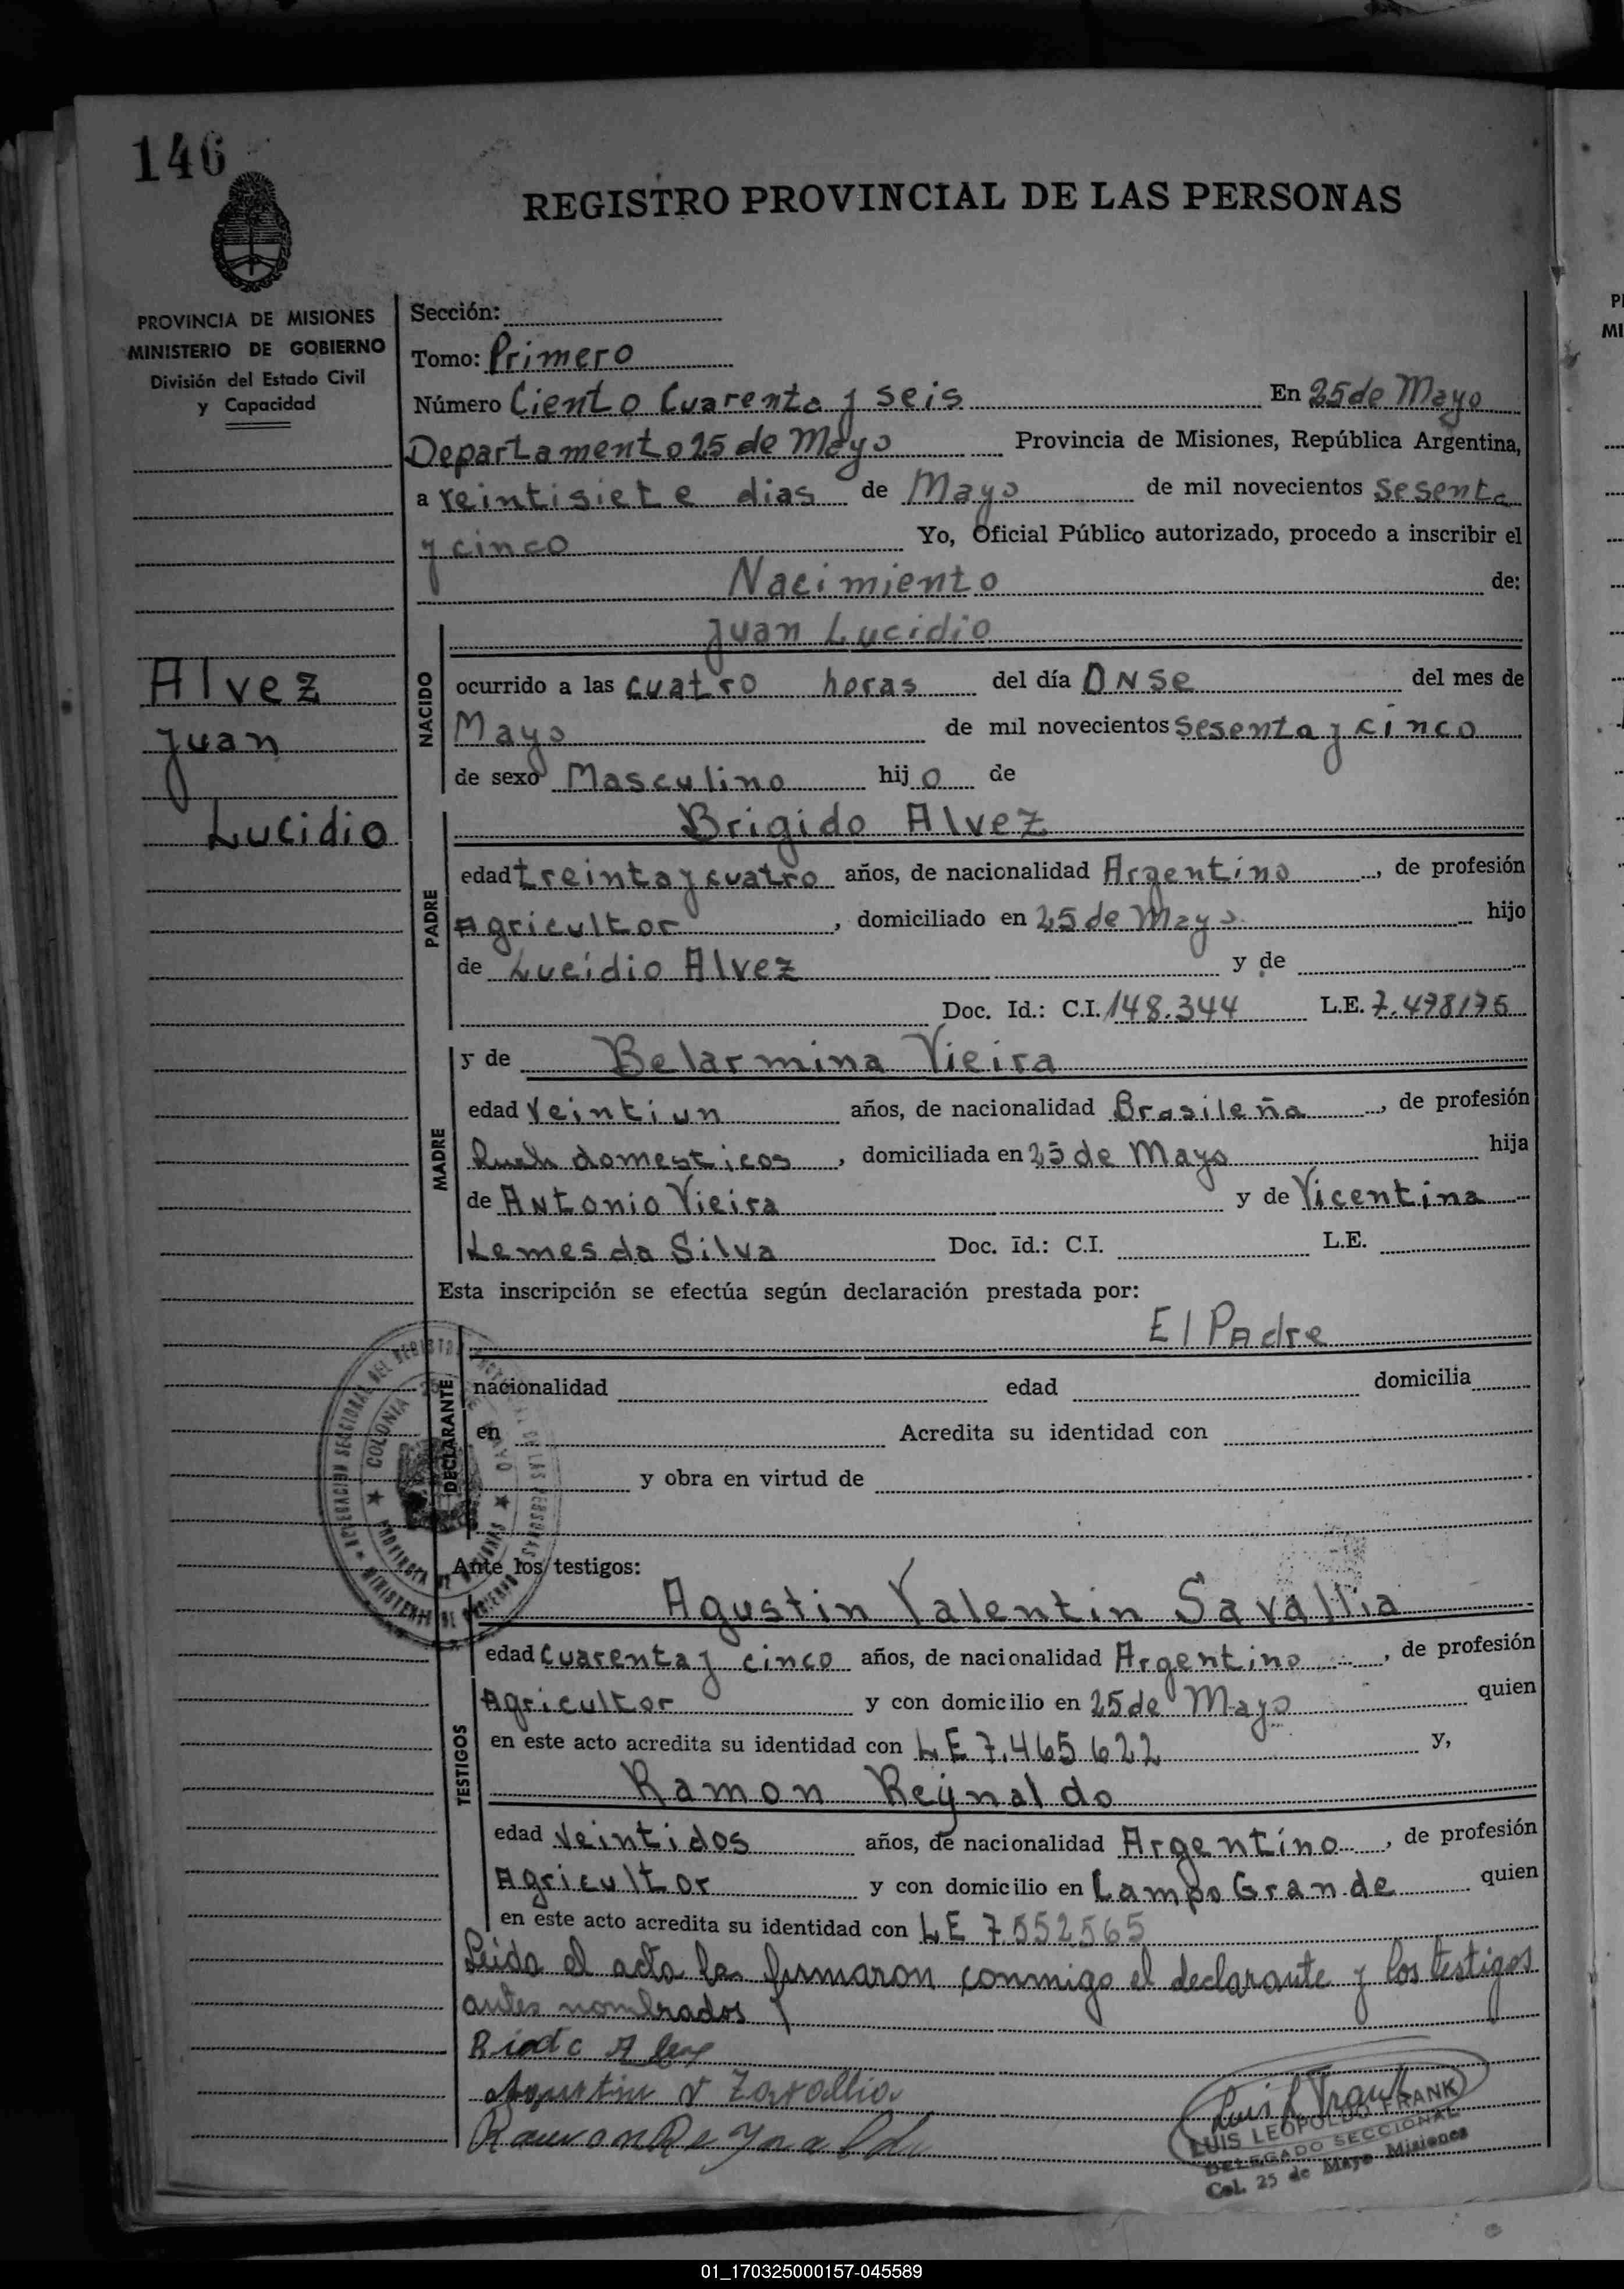 146
REGISTRO PROVINCIAL DE LAS PERSONAS
PROVINCIA DE MISIONES
MINISTERIO DE GOBIERNO
División del Estado Civil
y Capacidad
Alvez
Juan
Lucidio
Sección:
Tomo: Primero
Número Ciento Cuarenta y seis En 25 de Mayo
Departamento 25 de Mayo Provincia de Misiones, República Argentina,
a veintisiete dias de Mayo de mil novecientos Sesenta
y cinco Yo, Oficial Público autorizado, procedo a inscribir el
Nacimiento de:
NACIDO
Juan Lucidio
ocurrido a las cuatro horas del día ONSe del mes de
Mayo de mil novecientos Sesenta y cinco
de sexo Masculino hijo de
PADRE
Brigido Alvez
edad treinta y cuatro años, de nacionalidad Argentino, de profesión
Agricultor, domiciliado en 25 de Mayo hijo
de Lucidio Alvez y de
Doc. Id.: C.I. 148.344 L.E. 7.478175
MADRE
y de Belarmina Vieira
edad Veintiun años, de nacionalidad Brasileña, de profesión
domesticos, domiciliada en 25 de Mayo hija
de Antonio Vieira y de Vicentina
Lemes da Silva Doc. Id.: C.I. L.E.
Esta inscripción se efectúa según declaración prestada por:
DECLARANTE
El Padre
nacionalidad edad domicilia
en Acredita su identidad con
y obra en virtud de
COLONIA 25 DE MAYO
Ante los testigos:
TESTIGOS
Agustin Valentin Savallia
edad Cuarenta y cinco años, de nacionalidad Argentino, de profesión
Agricultor y con domicilio en 25 de Mayo quien
en este acto acredita su identidad con LE 7.465622 y,
Ramon Reynaldo
edad Veintidos años, de nacionalidad Argentino, de profesión
Agricultor y con domicilio en Campo Grande quien
en este acto acredita su identidad con LE 7.552.565
Leida el acta la firmaron conmigo el declarante y los testigos
antes nombrados
Agustin V Zavallia
Ramon Reynaldo
LUIS LEOPOLDO FRANK
DELEGADO SECCIONAL
Col. 25 de Mayo Misiones
01_170325000157-045589